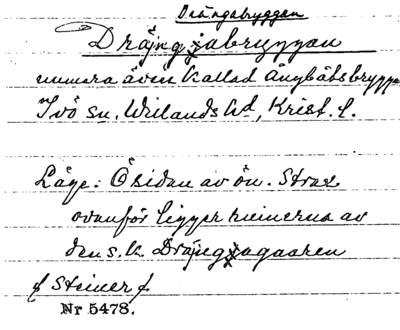 Drängabryggan
Drängjabryggan
numera även kallad Ångbåtsbryggan
Ivö sn. Willands hd, Krist. l.
Läge: Ö sidan av ön. Strax
ovanför ligger ruinerna av
den s.k. Drängjagaaren
f Steiner f.
Nr 5478.